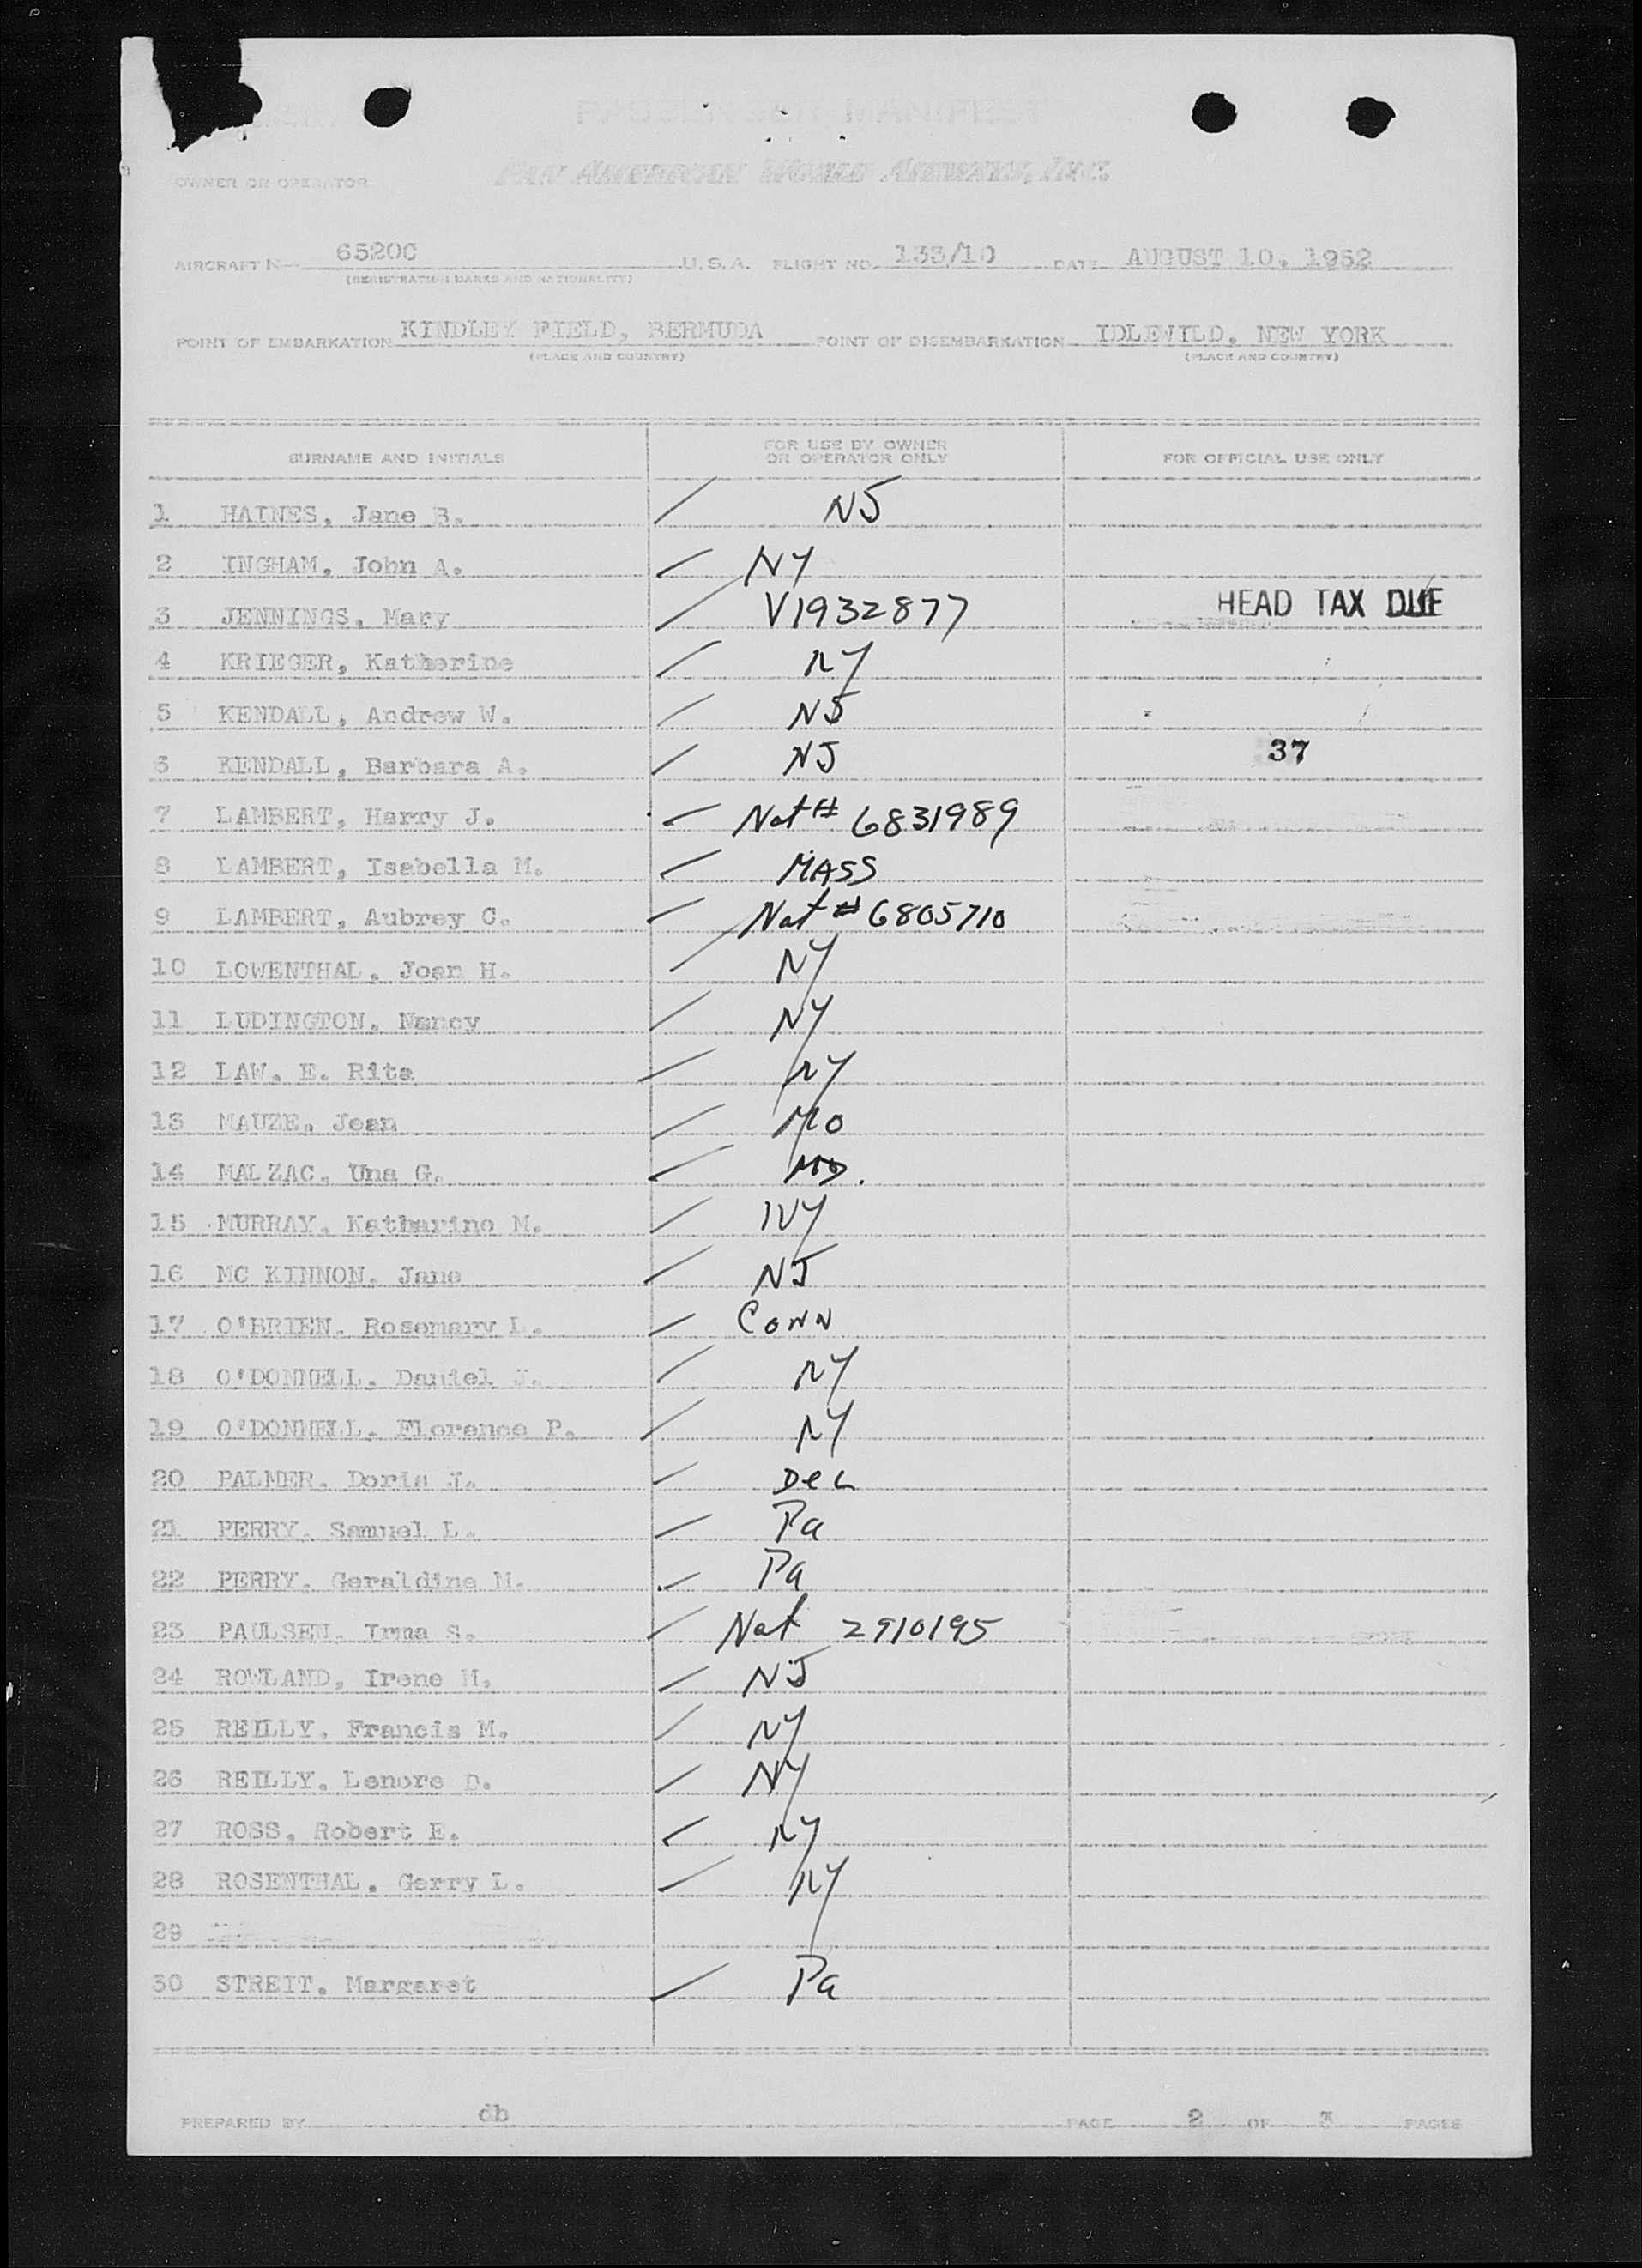 PASSENGER MANIFEST
OWNER OR OPERATOR PAN AMERICAN WORLD AIRWAYS, INC.
AIRCRAFT N 6520C U.S.A. FLIGHT NO. 133/10 DATE AUGUST 10, 1952
(REGISTRATION MARKS AND NATIONALITY)
POINT OF EMBARKATION KINDLEY FIELD, BERMUDA POINT OF DISEMBARKATION IDLEWILD, NEW YORK
(PLACE AND COUNTRY) (PLACE AND COUNTRY)
SURNAME AND INITIALS FOR USE BY OWNER OR OPERATOR ONLY FOR OFFICIAL USE ONLY
1 HAINES, Jane B. NJ
2 INGHAM, John A. NY
3 JENNINGS, Mary V1932877 HEAD TAX DUE
4 KRIEGER, Katherine NY
5 KENDALL, Andrew W. NJ
6 KENDALL, Barbara A. NJ 37
7 LAMBERT, Harry J. Nat # 6831989
8 LAMBERT, Isabella M. MASS
9 LAMBERT, Aubrey C. Nat # 6805710
10 LOWENTHAL, Joan H. NY
11 LUDINGTON, Nancy NY
12 LAW, E. Rita NY
13 MAUZE, Jean MO
14 MALZAC, Una G.
15 MURRAY, Katharine M. NY
16 MC KINNON, Jane NJ
17 O'BRIEN, Rosemary L. CONN
18 O'DONNELL, Daniel J. NY
19 O'DONNELL, Florence P. NY
20 PALMER, Doris J. Del
21 PERRY, Samuel L. Pa
22 PERRY, Geraldine M. Pa
23 PAULSEN, Irma S. Nat 2910195
24 ROWLAND, Irene M. NJ
25 REILLY, Francis M. NY
26 REILLY, Lenore D. NY
27 ROSS, Robert E. NY
28 ROSENTHAL, Gerry L. NY
29
30 STREIT, Margaret Pa
PREPARED BY db PAGE 2 OF 3 PAGES